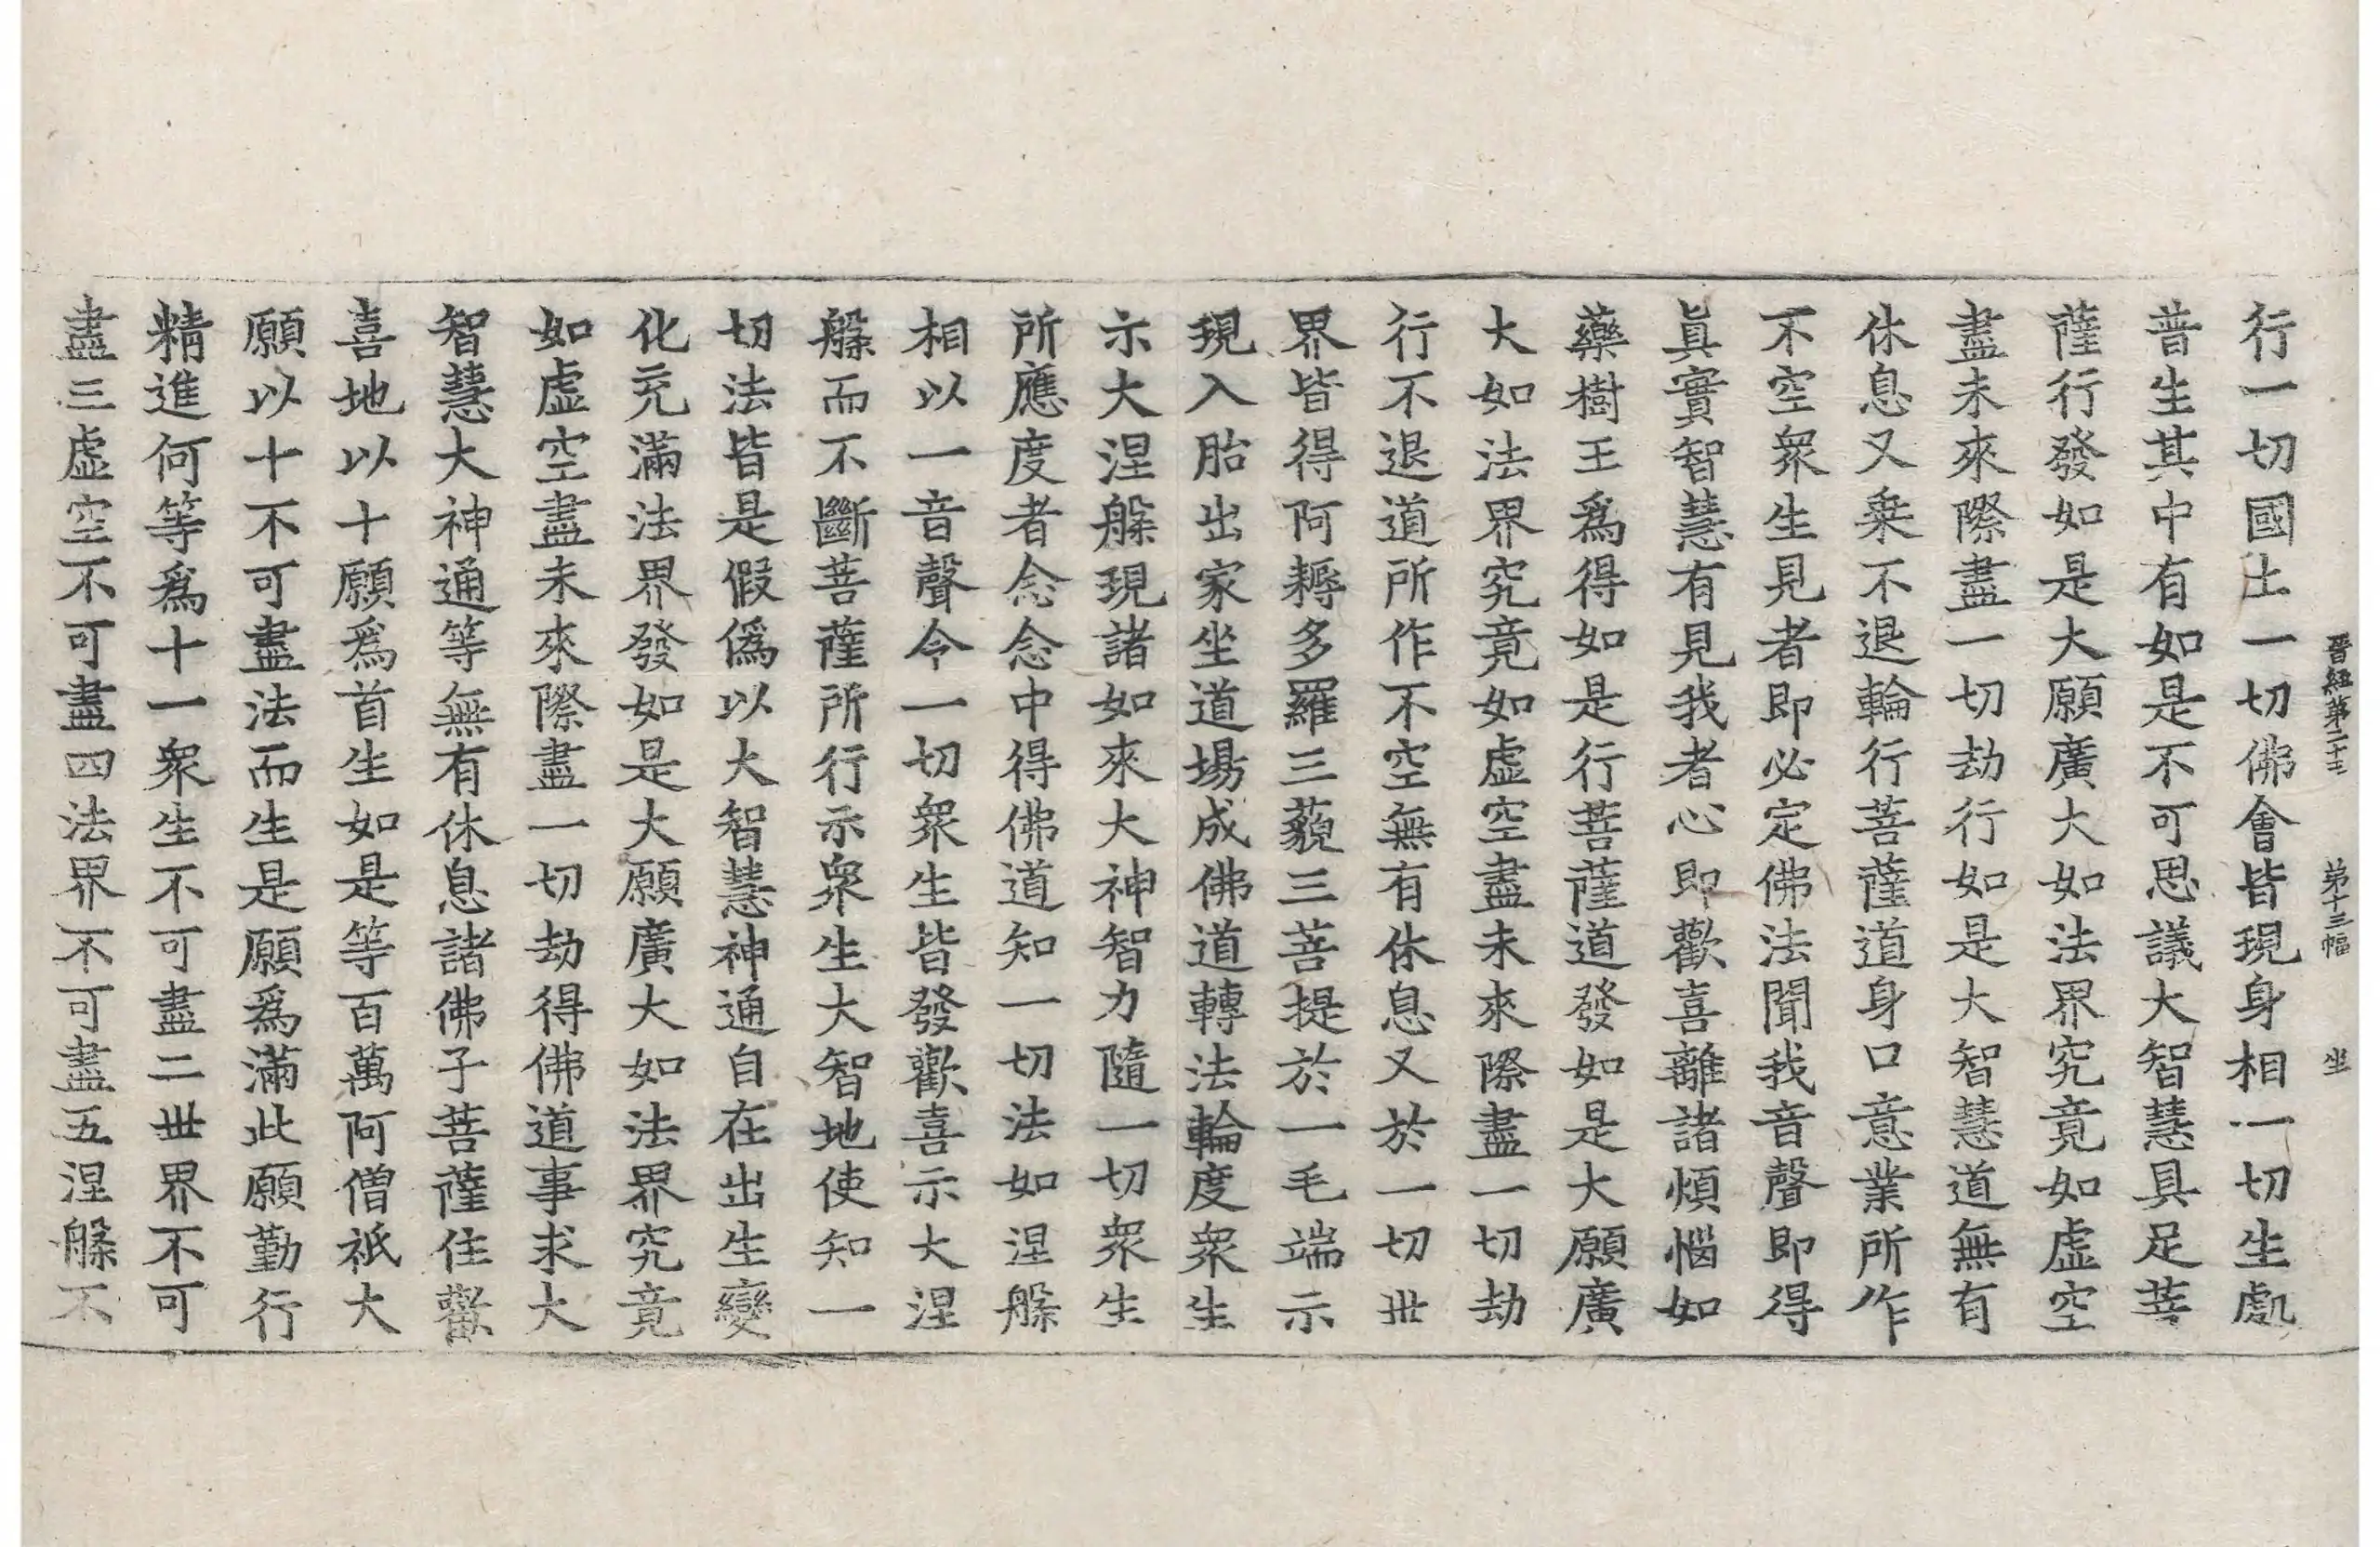 晋經第二十三　第十三幅　坐
行一切國土一切佛會皆現身相一切生處
普生其中有如是不可思議大智慧具足菩
薩行發如是大願廣大如法界究竟如虛空
盡未來際盡一切劫行如是大智慧道無有
休息又乗不退輪行菩薩道身口意業所作
不空衆生見者即必定佛法聞我音聲即得
眞實智慧有見我者心即歡喜離諸煩惱如
藥樹王爲得如是行菩薩道發如是大願廣
大如法界究竟如虛空盡未來際盡一切劫
行不退道所作不空無有休息又於一切丗
界皆得阿耨多羅三藐三菩提於一毛端示
現入胎出家坐道場成佛道轉法輪度衆生
示大涅槃現諸如來大神智力隨一切衆生
所應度者念念中得佛道知一切法如涅槃
相以一音聲令一切衆生皆發歡喜示大涅
槃而不斷菩薩所行示衆生大智地使知一
切法皆是假僞以大智慧神通自在出生變
化充滿法界發如是大願廣大如法界究竟
如虛空盡未來際盡一切劫得佛道事求大
智慧大神通等無有休息諸佛子菩薩住歡
喜地以十願爲首生如是等百萬阿僧祇大
願以十不可盡法而生是願爲滿此願勤行
精進何等爲十一衆生不可盡二丗界不可
盡三虛空不可盡四法界不可盡五涅槃不